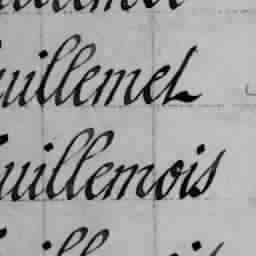 uillemet
uillemois